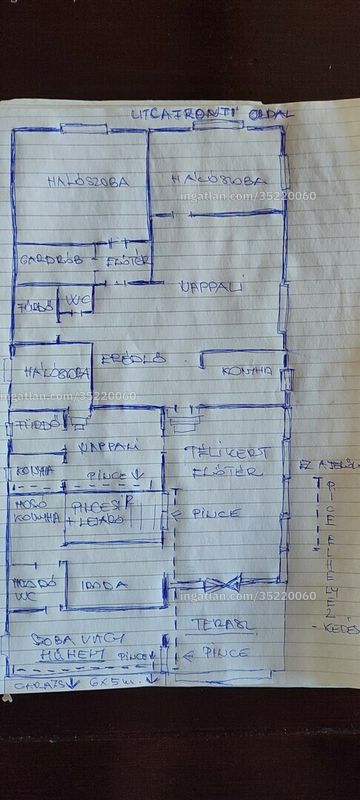 UTCAFRONTI OLDAL
HÁLÓSZOBA
HÁLÓSZOBA
ingatlan.com/35220060
ingatlan.com/35220060
GARDRÓB
ELŐTÉR
NAPPALI
FÜRDŐ
WC
EBÉDLŐ
HÁLÓSZOBA
KONYHA
ingatlan.com/35220060
FÜRDŐ
NAPPALI
TÉLIKERT
ELŐTÉR
KONYHA
PINCE
EZ A JELÖLÉ
MOSÓ
KONYHA
+ LEJÁRÓ
PINCE
PINCE ELHELYEZ
- KEDÉS
WC
IRODA
ingatlan.com/35220060
TERASZ
SZOBA VAGY
MŰHELY
PINCE
PINCE
GARÁZS 6x5m.